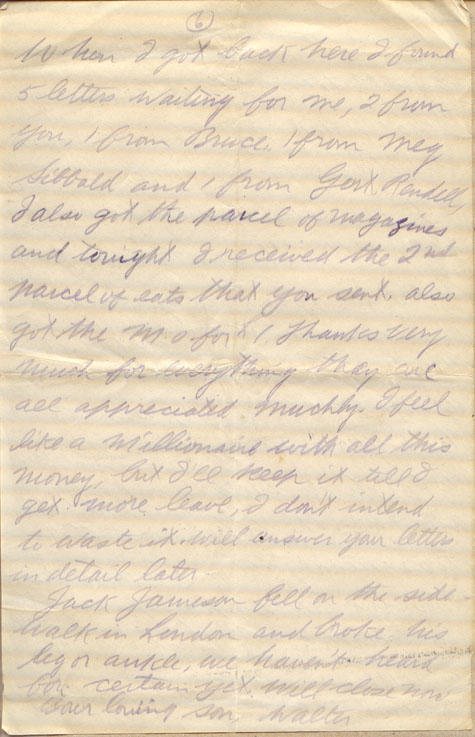 (6)
When I got back here I found
5 letters waiting for me, 2 from
you, 1 from Bruce, 1 from Meg
Sibbald and 1 from Gert Rendell,
I also got the parcel of magazines
and tonight I received the 2nd
parcel of eats that you sent. also
got the M.O for £1 Thanks very
much for everything they are
all appreciated muchly. I feel
like a Millionaire with all this
money, but I'll keep it till I
get more leave, I don't intend
to waste it. will answer your letters
in detail later
Jack Jameson fell on the side
walk in London and broke his
leg or ankle, we haven't heard
for certain yet. Will close now
Your loving son Walter